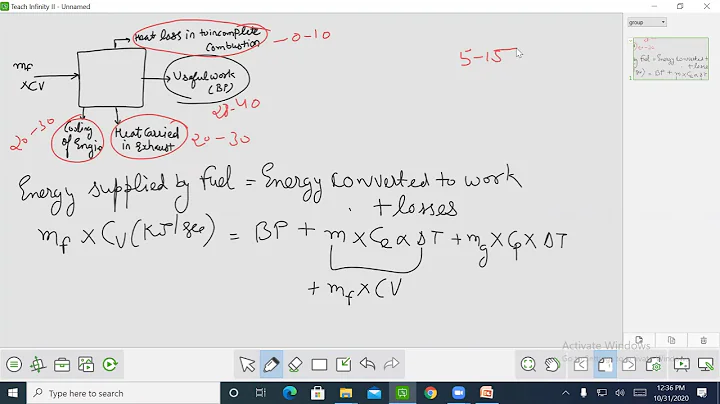 Teach Infinity II - Unnamed
group
Heat loss in to incomplete
combustion
0-10
5-15
mf
XCV
Useful work
(BP)
28-40
20-30
Cooling
of Engine
Heat Carried
in Exhaust
20-30
Energy supplied by fuel = Energy converted to work
+ losses
mf X CV (KJ/sec) = BP + m X Ce X ΔT + mg X Cp X ΔT
+ mf X CV
Activate Windows
Type here to search
12:36 PM
10/31/2020